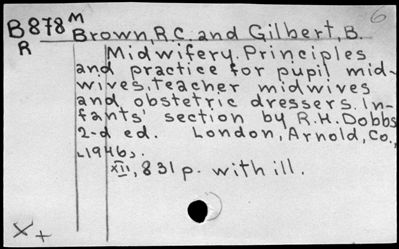 6
B878M
R
Brown, R.C. and Gilbert, B.
Midwifery. Principles
and practice for pupil mid-
wives, teacher midwives
and obstetric dressers. In-
fants' section by R.H. Dobbs
2-d ed. London, Arnold, Co.,
[1946].
XII, 831 p. with ill.
X+